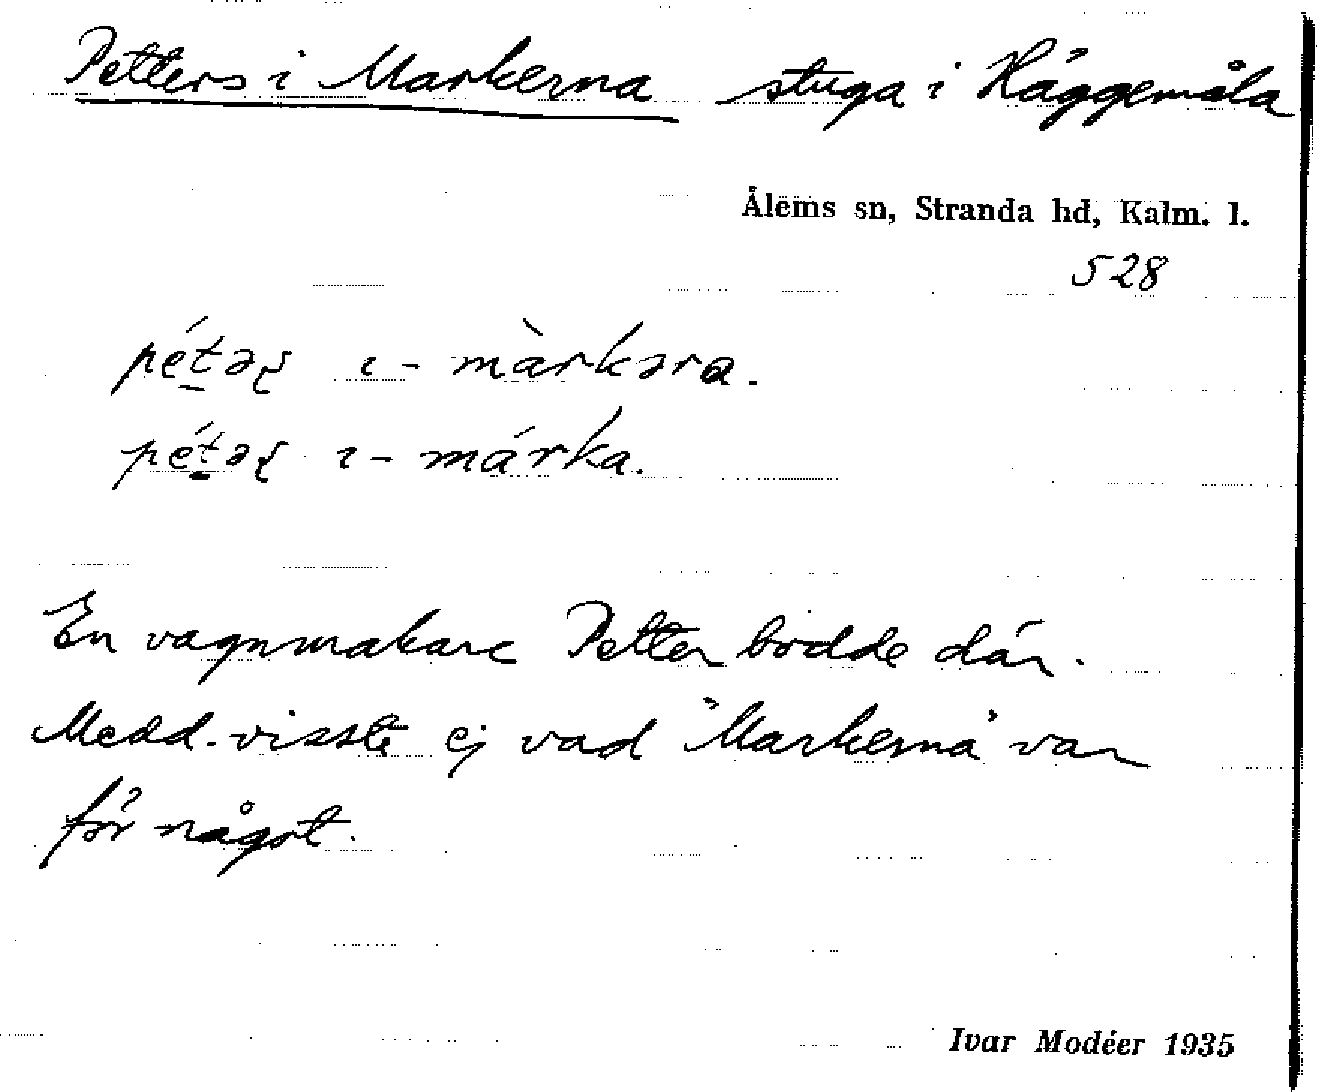 Petters i Markerna stuga i Häggemåla
Ålems sn, Stranda hd, Kalm. l.
528
pét̠əʂ ı- màrkəra.
pét̠əʂ ı- márka.
En vagnmakare Petter bodde där.
Medd. visste ej vad "Markerna" var
för något.
Ivar Modéer 1935